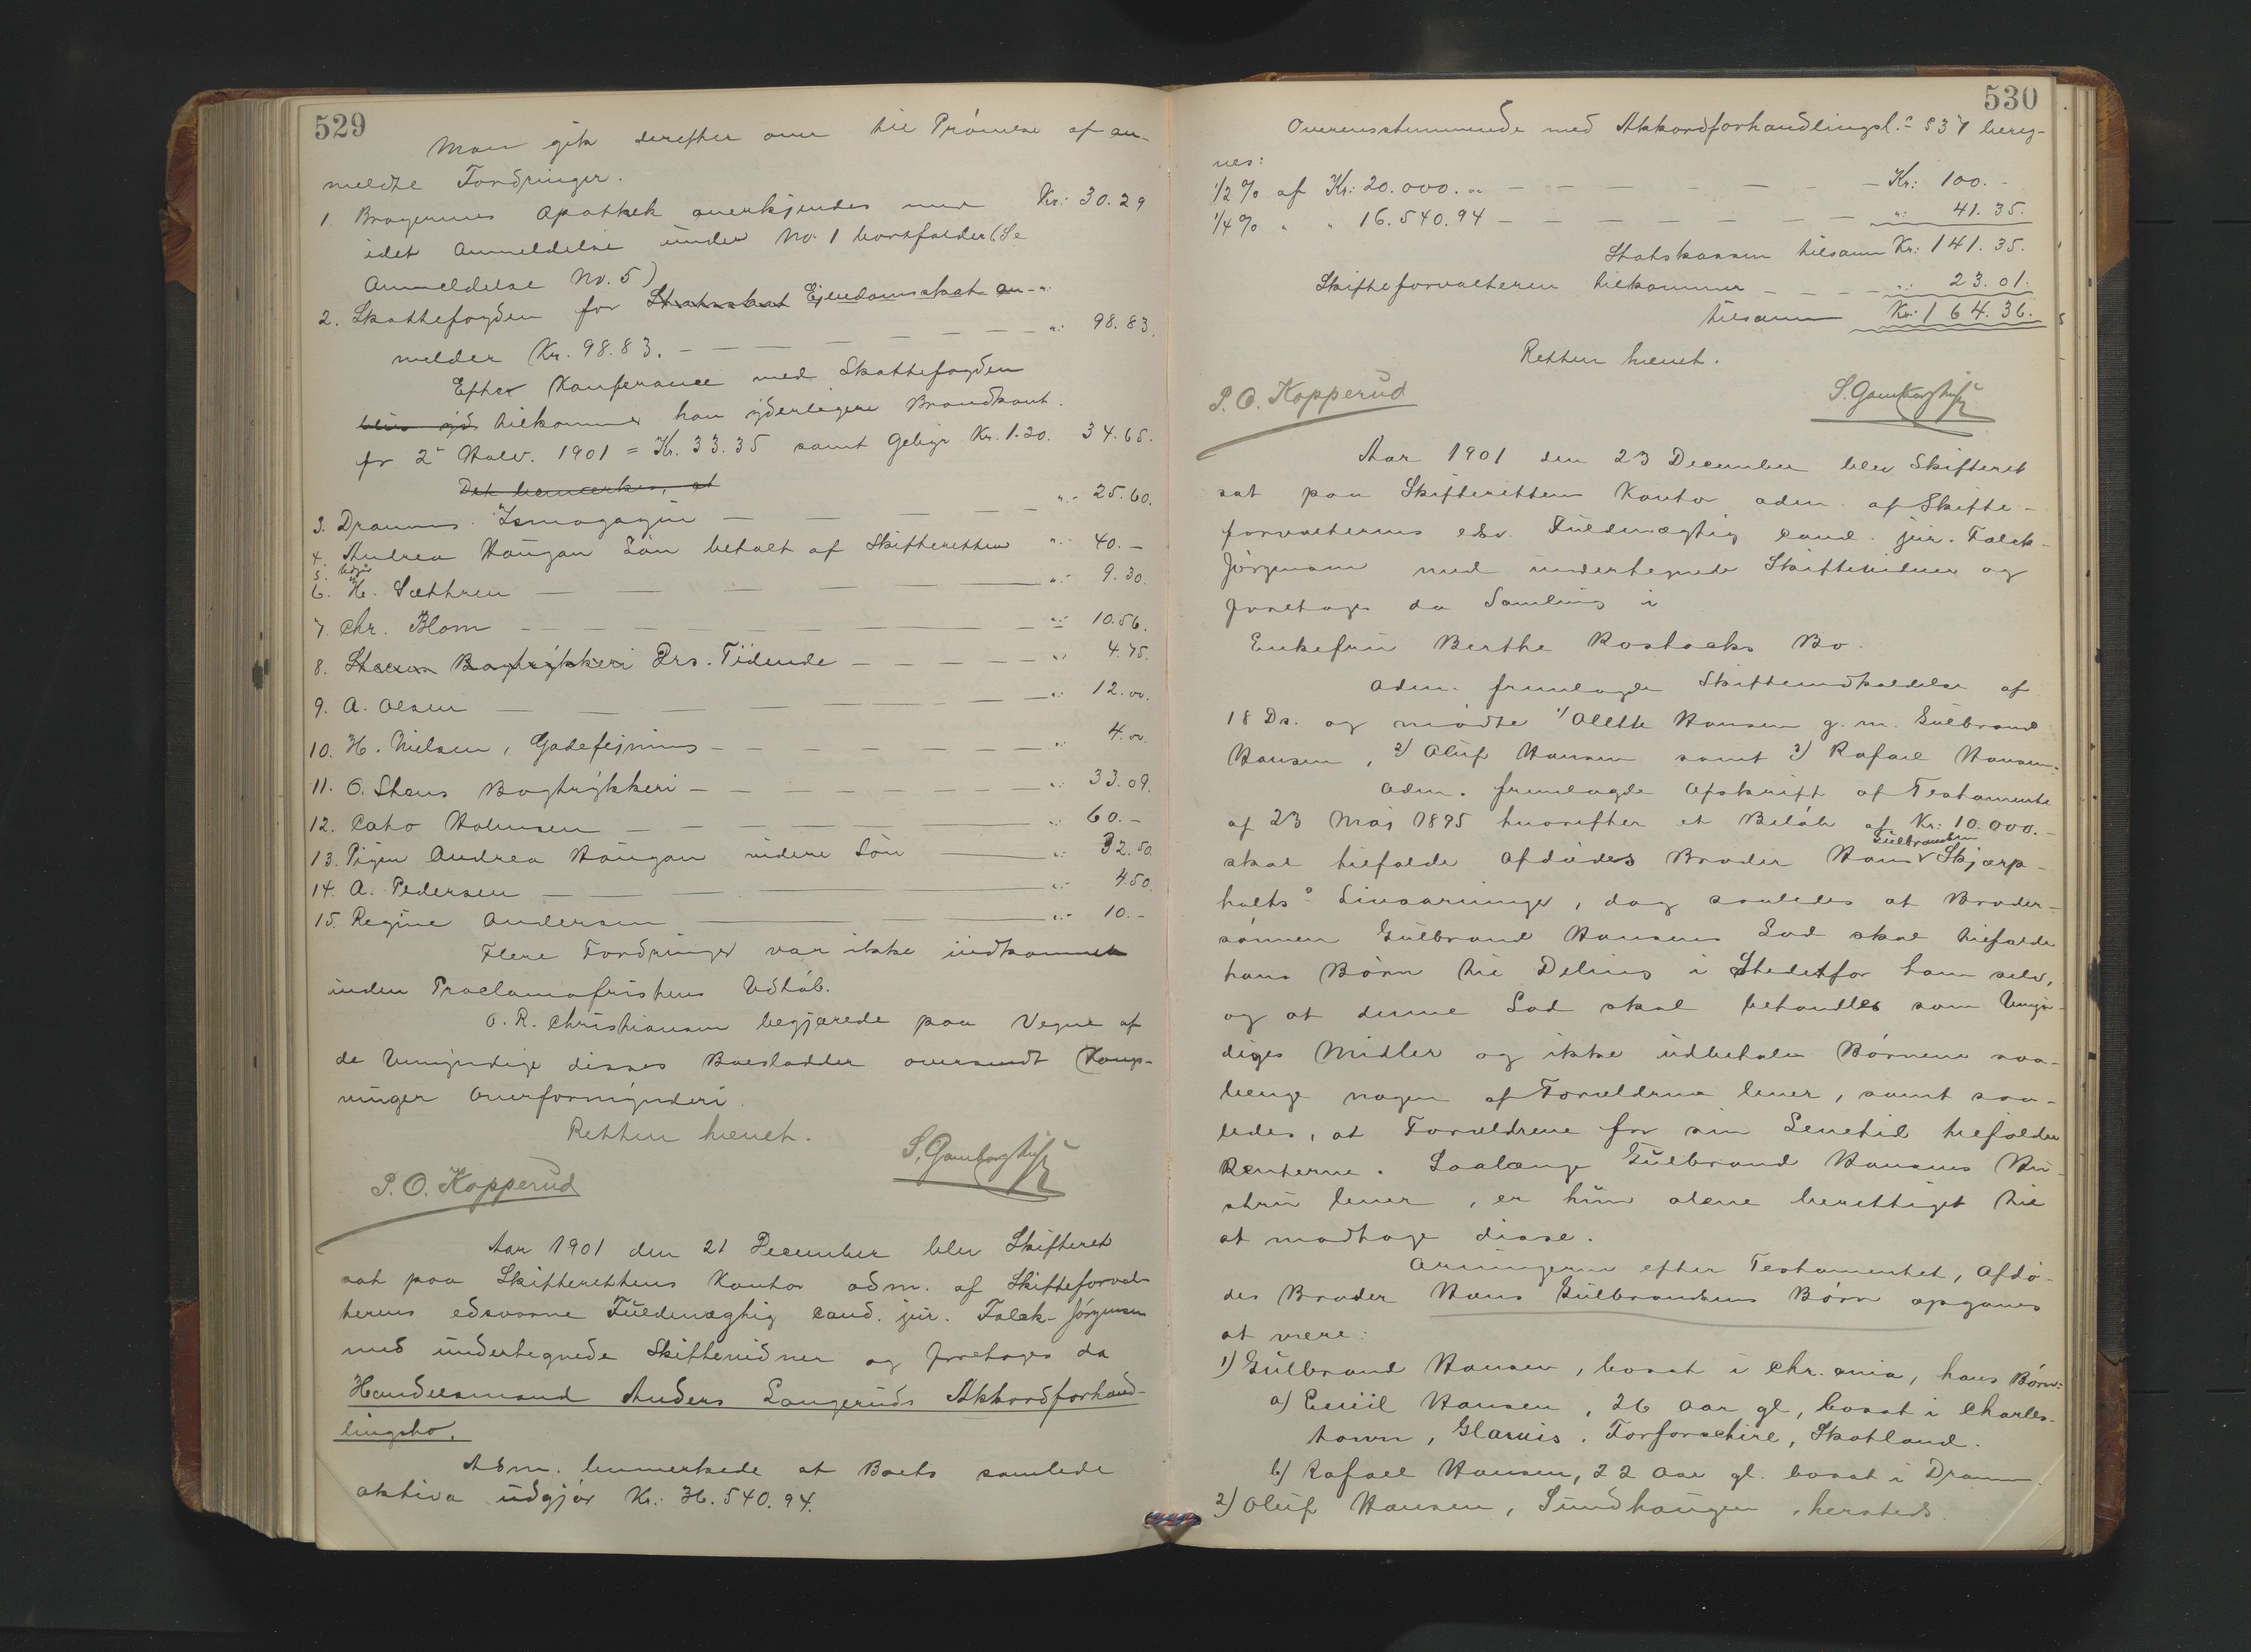 529
Man gik derefter over til Prövelse af an-
meldte Fordringer.
1. Bragernes Apothek anerkjendes med Kr: 30.29
idet Anmeldelse under No. 1 bortfalder (Se
Anmeldelse No. 5)
2. Skattefogden for Statsskat Ejendomsskat an-
melder Kr. 98.83. — — — — — " 98.83.
Efter Konferance med Skattefogden
blir yd tilkommer han yderligere Brandkont.
for 2det Halv. 1901 = Kr. 33.35 samt Gebyr Kr. 1.30. 34.65.
Det bemærkes, at
3. Drammens Ismagazin — — — — " 25.60.
4. Andrea Haugan Lön betalt af Skifteretten " 40.—
5. udgår
6. H. Sættren — — — — " 9.30.
7. Chr. Blom — — — — " 10.56.
8. Steens Bogtrykkeri Drs. Tidende — — — — " 4.75.
9. A. Olsen — — — — " 12.00.
10. H. Nielsen, Gadefejning — — — — " 4.00.
11. O. Steens Bogtrykkeri — — — — " 33.09.
12. Cato Holmsen — — — — " 60.—
13. Pigen Andrea Haugan videre Lön — " 32.50.
14. A. Pedersen — — — " 4.50.
15. Regine Andersen — — " 10.—
Flere Fordringer var ikke indkommet
inden Proclamafristens Udlöb.
O. R. Christiansen begjærede paa Vegne af
de Umyndige disses Boeslodder oversendt
Overformynderi.
Retten hævet.
P. O. Kopperud
Aar 1901 den 21 December blev Skifteret
sat paa Skifterettens Kontor adm. af Skifteforval-
terens edsvorne Fuldmægtig cand. jur. Falck-Jörgensen
med undertegnede Skiftevidner og foretoges da
Handelsmand Anders Langeruds Akkordforhand-
lingsbo.
Adm. bemerkede at Boets samlede
aktiva udgjör Kr.: 36.540.94.
530
Overensstemmende med Akkordforhandlingsl.s § 37 bereg-
nes:
1/2 % af Kr: 20.000.00 — — — — — — Kr: 100.—
1/4 % " " 16.540.94 — — — — — — " 41.35.
Statskassen tilsam Kr: 141.35.
Skifteforvalteren tilkommer — — — — " 23.01.
tilsammen Kr: 164.36.
Retten hævet.
P. O. Kopperud
Aar 1901 den 23 December blev Skifteret
sat paa Skifterettens Kontor adm. af Skifte-
forvalterens edsv. Fuldmægtig cand. jur. Falck-
Jörgensen med undertegnede Skiftevidner og
foretoges da Samling i
Enkefru Berthe Rostocks Bo.
Adm. fremlagde Skifteindkaldelse af
18 Ds. og mödte 1/ Olette Hansen g. m. Gulbrand
Hansen, 2/ Oluf Hansen samt 3/ Rafael Hansen.
Adm. fremlagde Afskrift af Testamente
af 23 Maj 1895 hvorefter et Belöb af Kr: 10.000.—
skal tilfalde Afdödes Broder Hans Gulbrandsen Skjærp-
holts Livsarvinger, dog saaledes at Broder-
sönnen Gulbrand Hansens Lod skal tilfalde
hans Börn til Deling i Stedetfor ham selv,
og at denne Lod skal behandles som Umyn-
diges Midler og ikke udbetales Börnene saa-
længe nogen af Forældrene lever, samt saa-
ledes, at Forældrene for sin Levetid tilfalder
Renterne. Saalænge Gulbrand Hansens Hu-
stru lever, er hun alene berettiget til
at modtage disse.
Arvingerne efter Testamentet, Afdö-
des Broder Hans Gulbrandsens Börn opgaves
at være:
1) Gulbrand Hansen, bosat i Chr.ania, hans Börn:
a) Emiil Hansen, 26 Aar gl, bosat i Charles-
town, Glamis. Forforschire, Skotland.
b) Rafael Hansen, 22 Aar gl. bosat i Dramm.
2) Oluf Hansen, Sundhaugen, hersteds.